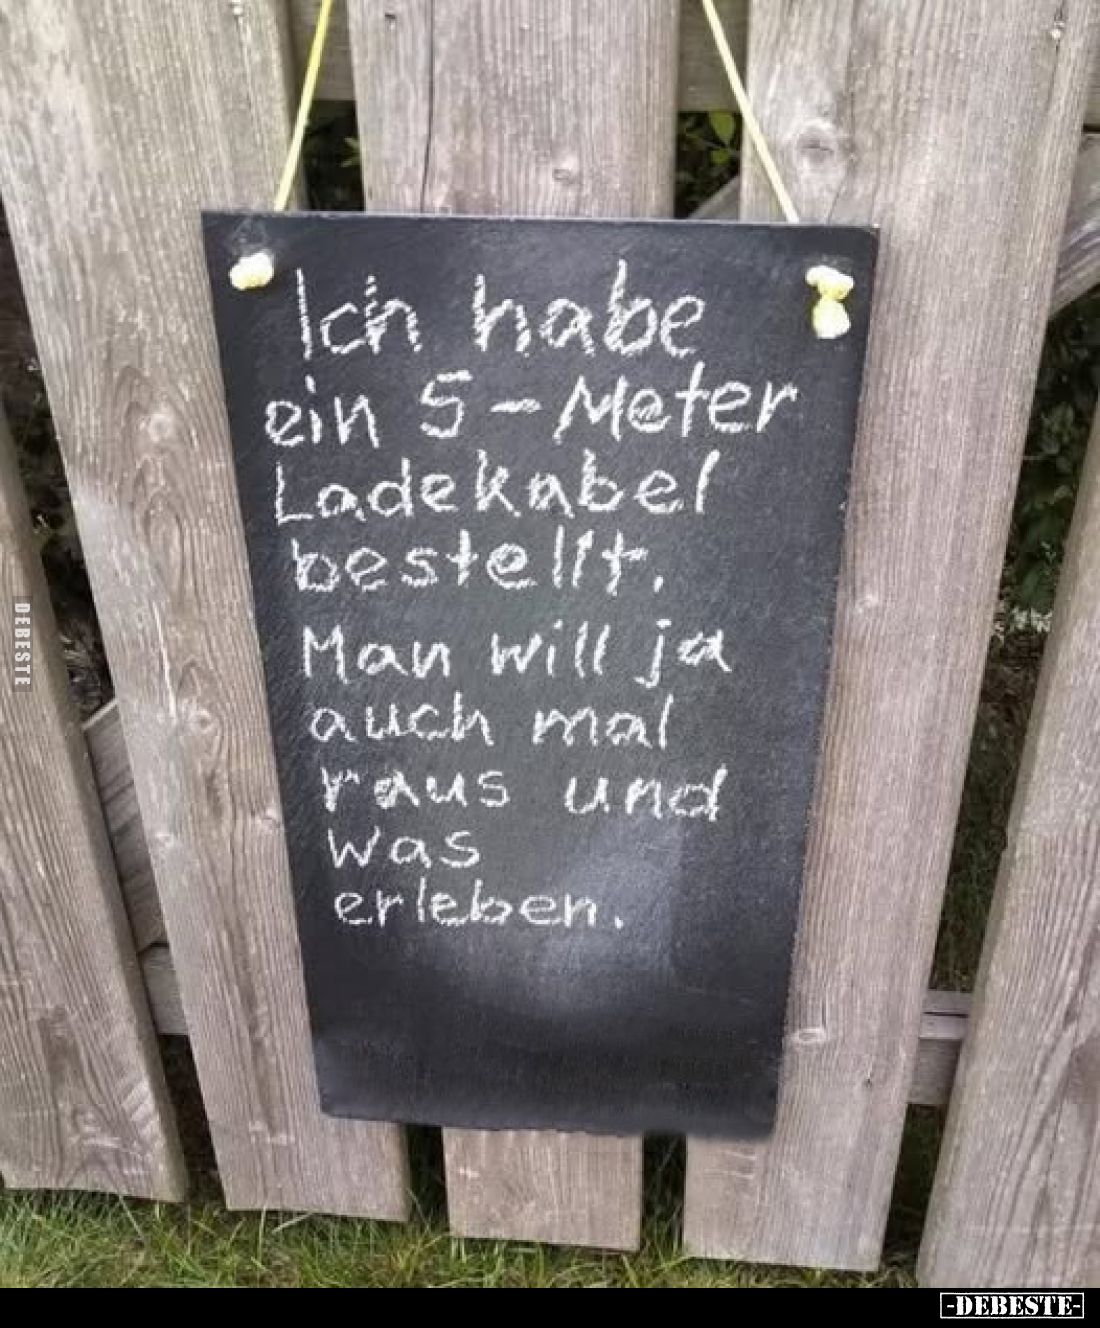 Ich habe
ein 5-Meter
Ladekabel
bestellt.
Man will ja
auch mal
raus und
was
erleben.
DEBESTE
-DEBESTE-